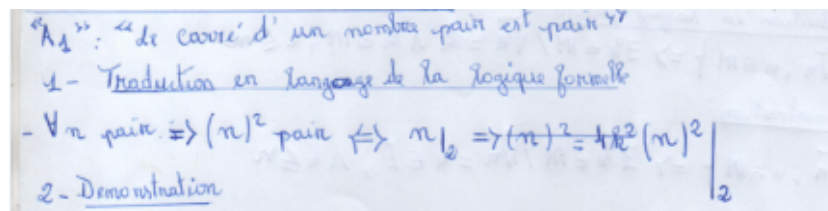 "A₁": "Le carré d'un nombre pair est pair"
1- Traduction en langage de la logique formelle
- ∀ n pair ⇒ (n)² pair ⇔ n|₂ ⇒ (n)² = 4k² (n)² |₂
2- Démonstration